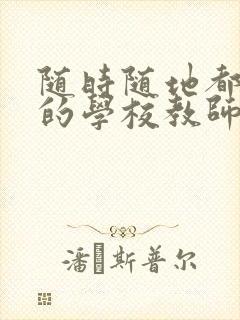 随時随地都
的學校教師
潘 斯普尔